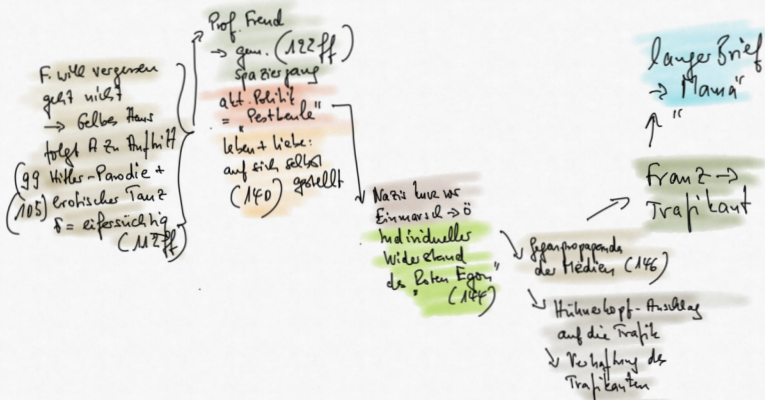 F. will vergessen
geht nicht
→ Gelbes Haus
folgt A zu Auftritt
(99 Hitler-Parodie +
105) erotischer Tanz
F = eifersüchtig
(112ff)
Prof. Freud
→ gem. (122ff)
spaziergang
akt. Politik
= "Pestbeule"
Leben + Liebe:
auf sich selbst
(140) gestellt
Nazis kurz vor
Einmarsch → Ö
Individueller
Widerstand
des "Roten Egon"
(144)
Gegenpropaganda
der Medien (146)
Hühnerkopf-Anschlag
auf die Trafik
Verhaftung des
Trafikanten
Franz →
Trafikant
langer Brief
→ "Mama"